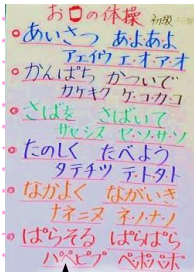 お口の体操 初級
あいさつ あよあよ
アエイウ エ・オ・ア・オ
かんぱち かついで
カケキク ケ・コ・カ・コ
さばを さばいて
サセシス セ・ソ・サ・ソ
たのしく たべよう
タテチツ テ・ト・タ・ト
なかよく ながいき
ナネニヌ ネ・ノ・ナ・ノ
ぱらそる ぱらぱら
パペピプ ペ・ポ・パ・ポ